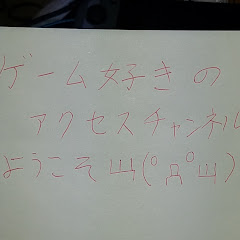 ゲーム好きの
アクセスチャンネル
ようこそ山(゜Д゜山)